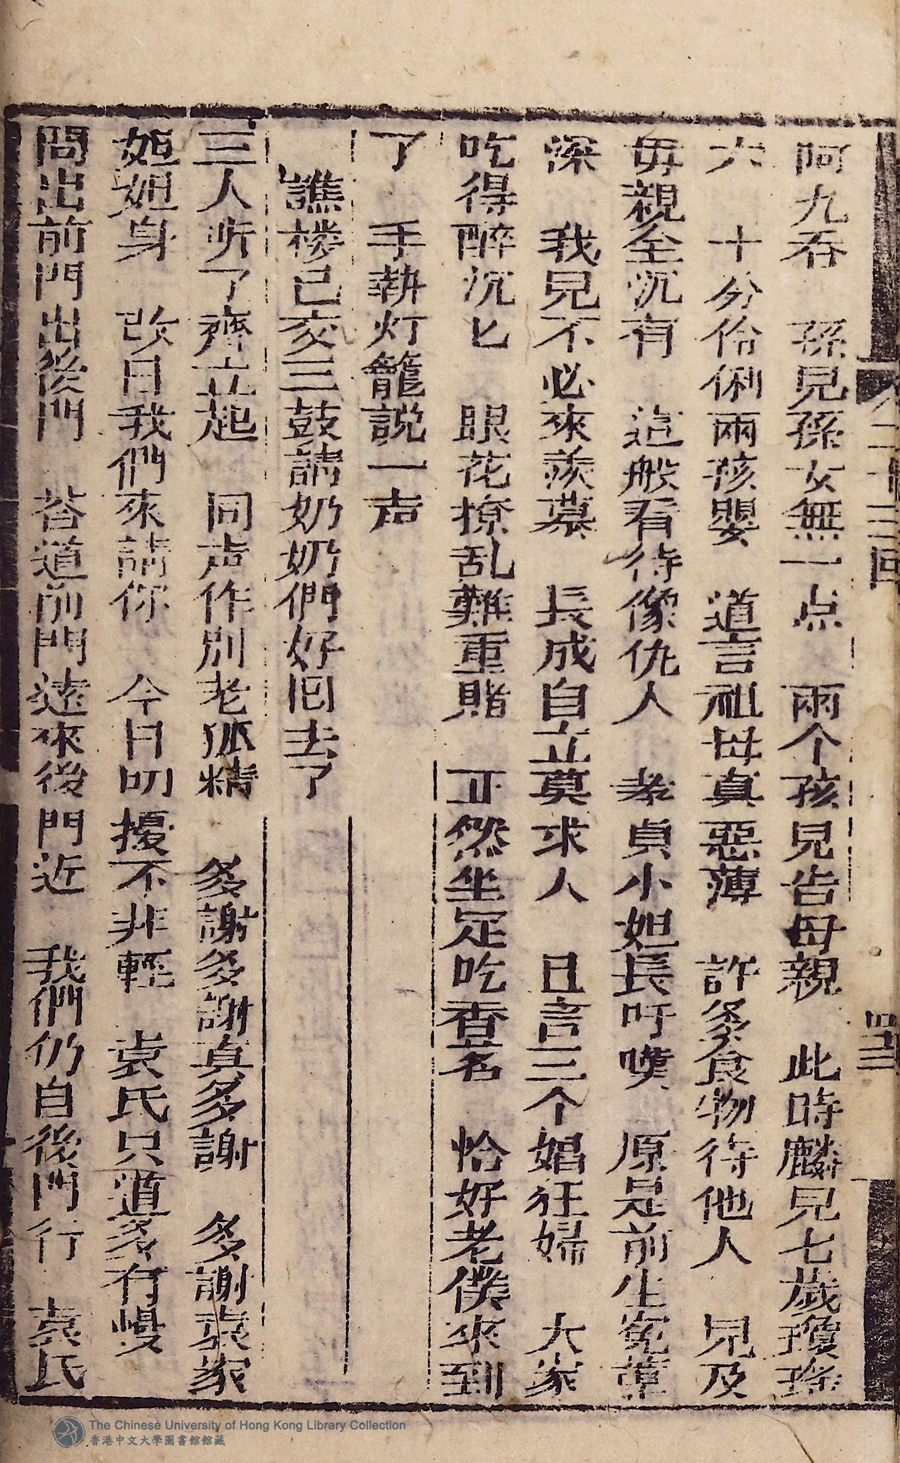 卷二十三回 四十三
阿九吞 孫兒孫女無一点 兩个孩兒告母親 此時麟兒七歲瓊珍
六 十分伶俐兩孩嬰 道言祖母真惡薄 許多食物待他人 兒及
毋親全沉有 這般看待像仇人 孝貞小姐長吁嘆 原是前生冤孽
深 我兒不必來羨慕 長成自立莫求人 且言三个娼狂婦 大家
吃得醉沉匕 眼花撩乱難重賭 正然坐定吃香茗 恰好老僕來到
了 手執灯籠説一声
譙楼已交三鼓請奶奶們好囘去了
三人听了齊立起 同声作別老狐精 多謝多謝真多謝 多謝袁家
姐姐身 改日我們來請你 今日叨擾不非輕 袁氏只道多有慢
問出前門出後門 荅道前門遠來後門近 我們仍自後門行 袁氏
The Chinese University of Hong Kong Library Collection
香港中文大學圖書館館藏